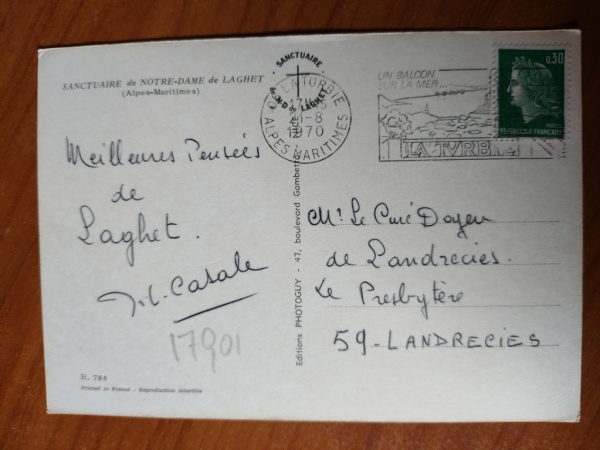 SANCTUAIRE de NOTRE-DAME de LAGHET
(Alpes-Maritimes)
Meilleures Pensées
de
Laghet.
J.L. Casale
17901
B. 784
Printed in France - Reproduction interdite
SANCTUAIRE
N-D de LAGHET
LA TURBIE
17H
1-8
1970
ALPES MARITIMES
Editions PHOTOGUY - 47, boulevard Gambetta
UN BALCON
SUR LA MER...
LA TVRBIE
0,30
POSTES
REPUBLIQUE FRANÇAISE
Mr. Le Curé Doyen
de Landrecies.
Le Presbytère
59-LANDRECIES